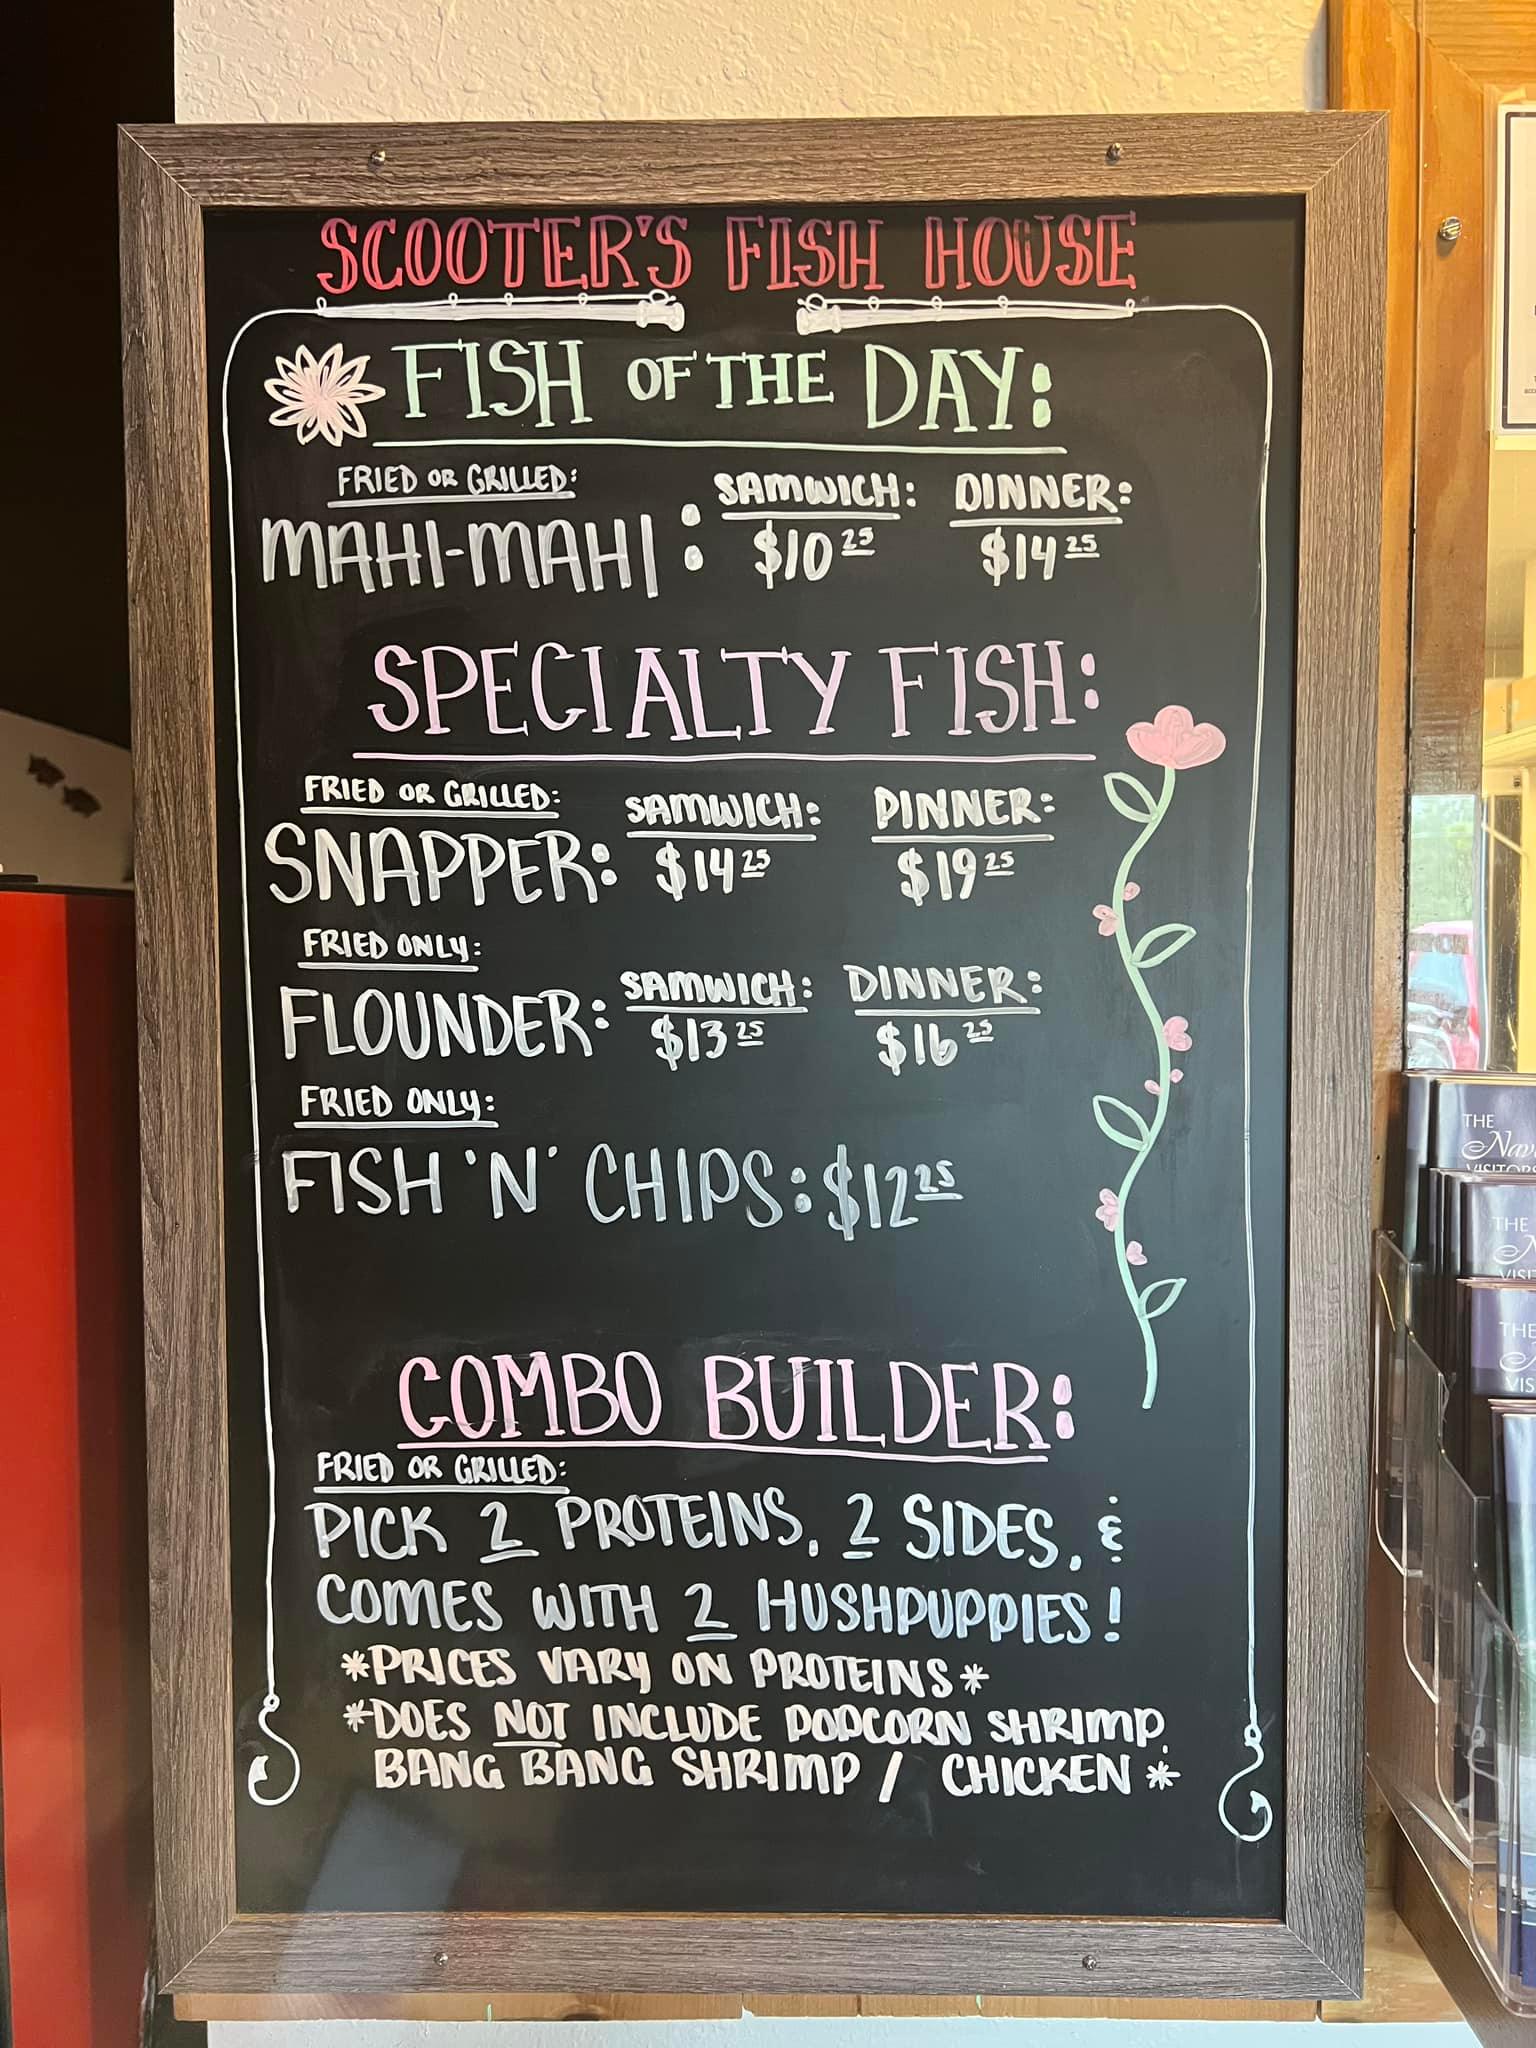 SCOOTER'S FISH HOUSE
FISH OF THE DAY:
FRIED OR GRILLED:
SAMWICH: DINNER:
MAHI-MAHI: $10 25 $14 25
SPECIALTY FISH:
FRIED OR GRILLED:
SAMWICH: DINNER:
SNAPPER: $14 25 $19 25
FRIED ONLY:
SAMWICH: DINNER:
FLOUNDER: $13 25 $16 25
FRIED ONLY:
FISH 'N' CHIPS: $12 25
COMBO BUILDER:
FRIED OR GRILLED:
PICK 2 PROTEINS, 2 SIDES, &
COMES WITH 2 HUSHPUPPIES!
*PRICES VARY ON PROTEINS*
*DOES NOT INCLUDE POPCORN SHRIMP,
BANG BANG SHRIMP / CHICKEN*
THE
VISITORS
THE
THE
VIS